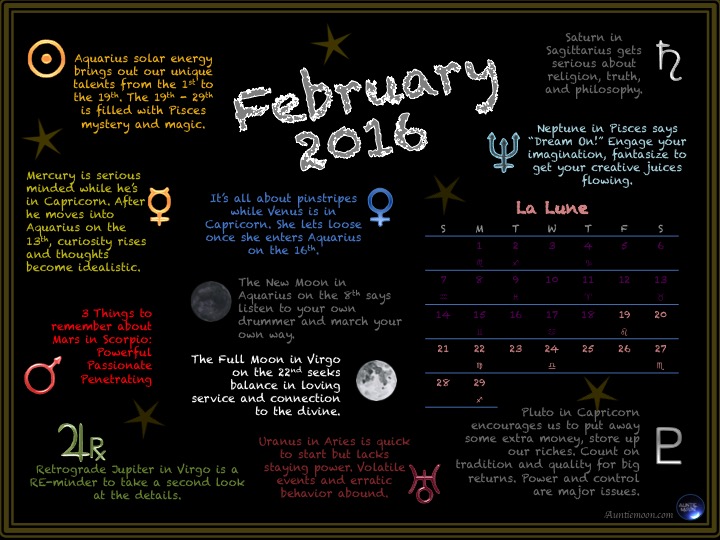 Aquarius solar energy
brings out our unique
talents from the 1st to
the 19th. The 19th - 29th
is filled with Pisces
mystery and magic.
February
2016
Saturn in
Sagittarius gets
serious about
religion, truth,
and philosophy.
Neptune in Pisces says
“Dream On!” Engage your
imagination, fantasize to
get your creative juices
flowing.
Mercury is serious
minded while he’s
in Capricorn. After
he moves into
Aquarius on the
13th, curiosity rises
and thoughts
become idealistic.
It’s all about pinstripes
while Venus is in
Capricorn. She lets loose
once she enters Aquarius
on the 16th.
La Lune
S M T W T F S
1 2 3 4 5 6
7 8 9 10 11 12 13
14 15 16 17 18 19 20
21 22 23 24 25 26 27
28 29
The New Moon in
Aquarius on the 8th says
listen to your own
drummer and march your
own way.
3 Things to
remember about
Mars in Scorpio:
Powerful
Passionate
Penetrating
The Full Moon in Virgo
on the 22nd seeks
balance in loving
service and connection
to the divine.
Retrograde Jupiter in Virgo is a
RE-minder to take a second look
at the details.
Uranus in Aries is quick
to start but lacks
staying power. Volatile
events and erratic
behavior abound.
Pluto in Capricorn
encourages us to put away
some extra money, store up
our riches. Count on
tradition and quality for big
returns. Power and control
are major issues.
Auntiemoon.com
AUNTIE
MOON